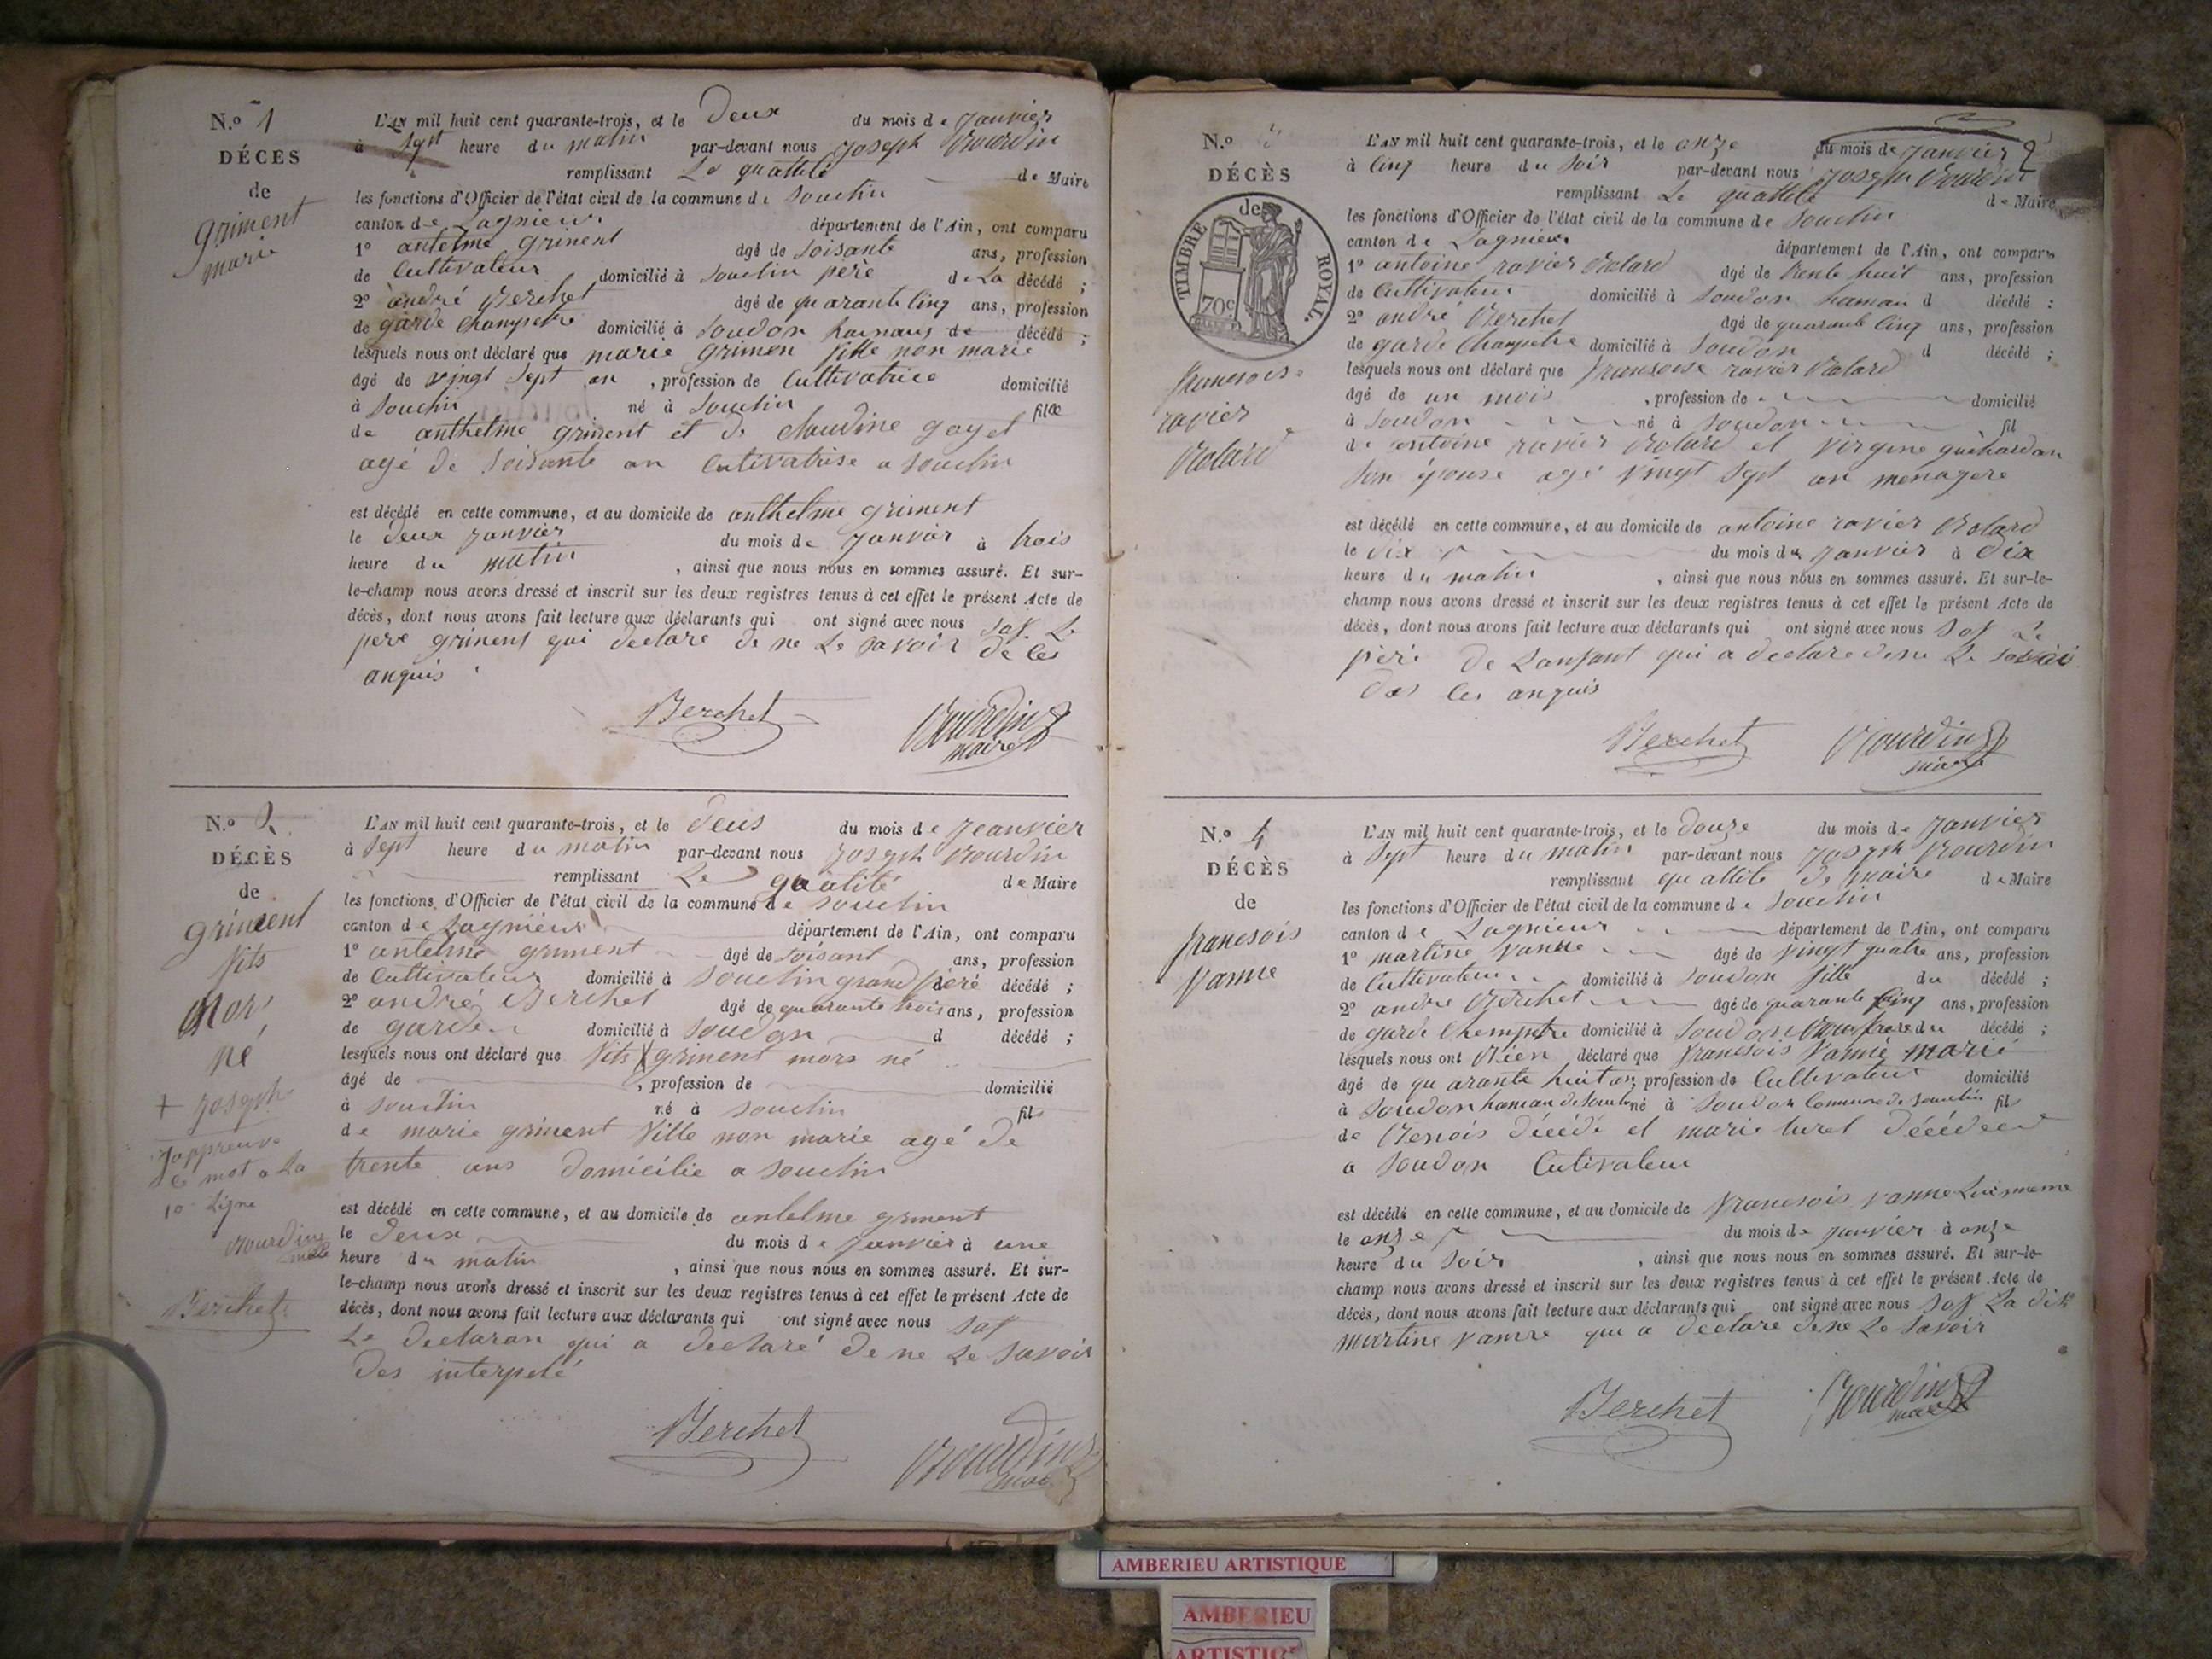 N.o 1
DÉCES
de
griment
marie
L'AN mil huit cent quarante-trois, et le Deux du mois de Janvier
à Sept heure du matin par-devant nous Joseph Bourdin
remplissant Le quattité de Maire
les fonctions d'Officier de l'état civil de la commune de Souclin
canton de Lagnieux département de l'Ain, ont comparu
1o antelme griment agé de Soisante ans, profession
de Cultivateur domicilié à Souclin père de La décédé ;
2o andré Berchet agé de quarante Cinq ans, profession
de garde Champetre domicilié à Soudon hamaus de décédé ;
lesquels nous ont déclaré que marie grimen fille non marié
âgé de vingt Sept an , profession de Cultivatrice domicilié
à Souclin né à Souclin fille
de anthelme griment et de claudine goyet
agé de Soisante an Cultivatrise a Souclin
est décédé en cette commune, et au domicile de anthelme griment
le deux Janvier du mois de Janvier à trois
heure du matin , ainsi que nous nous en sommes assuré. Et sur-
le-champ nous avons dressé et inscrit sur les deux registres tenus à cet effet le présent Acte de
décès, dont nous avons fait lecture aux déclarants qui ont signé avec nous Sof Le
pere griment qui declare de ne Le Savoir de Ces
anquis
Berchet Bourdin
maire
N.o 2
DÉCÈS
de
griment
fits
mor
né
+ Joseph
Japprenve
Le mot a La
10 Ligne
Bourdin
maire
Berchet
L'AN mil huit cent quarante-trois, et le deus du mois de Jeanvier
à Sept heure du matin par-devant nous Joseph Bourdin
remplissant Le qualité de Maire
les fonctions d'Officier de l'état civil de la commune de Souclin
canton de Lagnieux département de l'Ain, ont comparu
1o antelme griment âgé de Soisant ans, profession
de Cultivateur domicilié à Souclin grand peré décédé ;
2o andré Berchet âgé de quarante trois ans, profession
de garde domicilié à Soudon d décédé ;
lesquels nous ont déclaré que fits X griment mors né
âgé de , profession de domicilié
à Souclin né à Souclin fils
de marie griment fille non marie agé de
trente ans domicilie a Souclin
est décédé en cette commune, et au domicile de antelme griment
le Deux du mois de Janvier à une
heure du matin , ainsi que nous nous en sommes assuré. Et sur-
le-champ nous avons dressé et inscrit sur les deux registres tenus à cet effet le présent Acte de
décès, dont nous avons fait lecture aux déclarants qui ont signé avec nous Sof
Le declaran qui a declaré de ne Le Savoir
des interpelé
Berchet Bourdin
N.o 3
DÉCÈS
de
TIMBRE ROYAL.
70c
francois
ravier
Bolard
L'AN mil huit cent quarante-trois, et le onze du mois de Janvier
à Cinq heure du Soir par-devant nous Joseph Bourdin
remplissant Le quattité de Maire
les fonctions d'Officier de l'état civil de la commune de Souclin
canton de Lagnieux département de l'Ain, ont comparu
1o antoine ravier Bolard âgé de trente huit ans, profession
de Cultivateur domicilié à Soudon hamau d décédé :
2o andré Berchet âgé de quarante Cinq ans, profession
de garde Champetre domicilié à Soudon d décédé ;
lesquels nous ont déclaré que fransoise ravier Bolard
âgé de un mois , profession de domicilié
à Soudon né à Soudon fil
de antoine ravier Bolard et virgine
Son épouse agé vingt Sept an menagere
est décédé en cette commune, et au domicile de antoine ravier Bolard
le dix du mois de Janvier à dix
heure du matin , ainsi que nous nous en sommes assuré. Et sur-le-
champ nous avons dressé et inscrit sur les deux registres tenus à cet effet le présent Acte de
décès, dont nous avons fait lecture aux déclarants qui ont signé avec nous Sof Le
pere de Lanfant qui a declare de ne Le
des les anquis
Berchet Bourdin
maire
N.o 4
DÉCÈS
de
francsois
Vanne
L'AN mil huit cent quarante-trois, et le douze du mois de Janvier
à Sept heure du matin par-devant nous Joseph Bourdin
remplissant quattite de maire de Maire
les fonctions d'Officier de l'état civil de la commune de Souclin
canton de Lagnieux département de l'Ain, ont comparu
1o martine Vanne âgé de vingt quatre ans, profession
de Cultivateur domicilié à Soudon fille du décédé ;
2o andre Berchet âgé de quarante Cinq ans, profession
de garde Chempetre domicilié à Soudon du décédé ;
lesquels nous ont Bien déclaré que francsois Vanne marié
âgé de quarante huit an, profession de Cultivateur domicilié
à Soudon hamau de Souclin né à Soudon Commune de Souclin fils
de Benois décédé et marie turet décédé
a Soudon Cultivateur
est décédé en cette commune, et au domicile de francsois vanne Lui meme
le onze du mois de Janvier à onze
heure du Soir , ainsi que nous nous en sommes assuré. Et sur-le-
champ nous avons dressé et inscrit sur les deux registres tenus à cet effet le présent Acte de
décès, dont nous avons fait lecture aux déclarants qui ont signé avec nous Sof La dite
martine vanne qui a declare de ne Le Savoir
Berchet Bourdin
maire
AMBERIEU ARTISTIQUE
AMBERIEU
ARTISTIQ